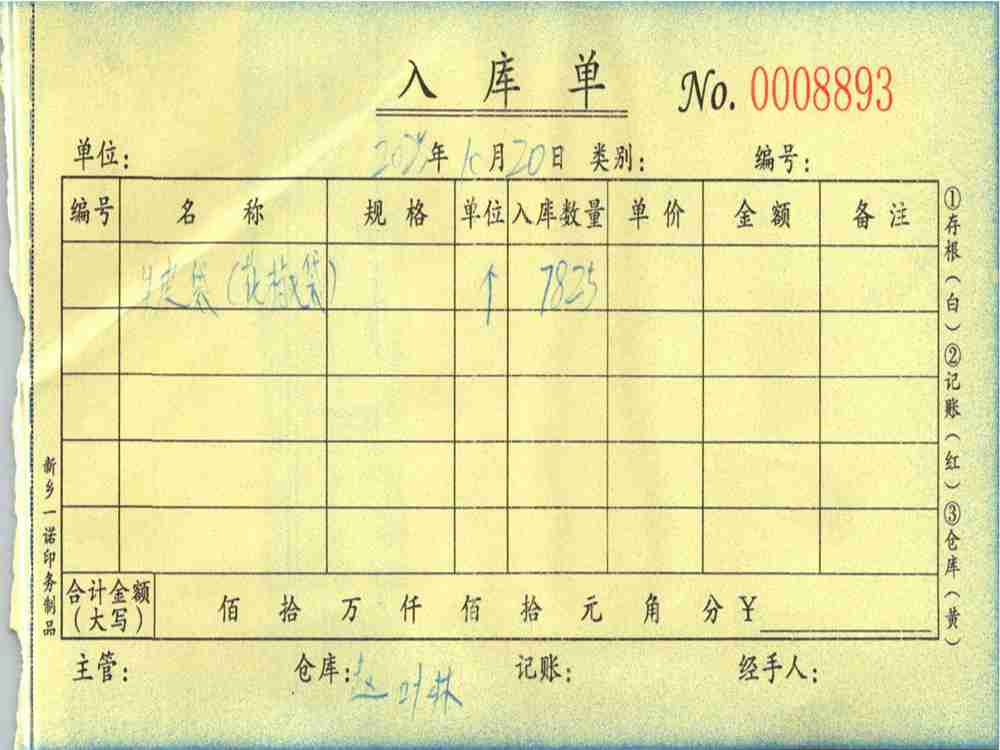 入库单 No. 0008893
单位: 年 月20日 类别: 编号:
编号 名称 规格 单位 入库数量 单价 金额 备注
袋(花椒袋) 个 7825
合计金额(大写) 佰 拾 万 仟 佰 拾 元 角 分 ¥
主管: 仓库: 记账: 经手人:
①存根(白)②记账(红)③仓库(黄)
新乡一诺印务制品